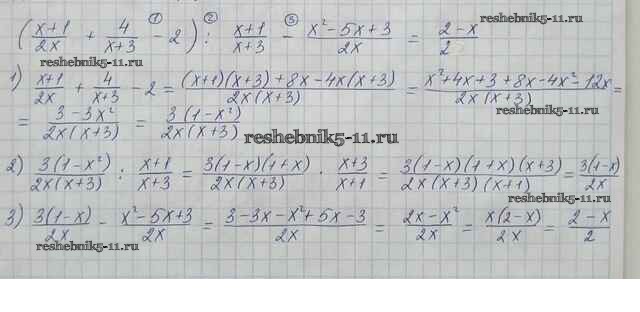 ( (x+1)/(2x) + 4/(x+3) ① - 2 ) ② : (x+1)/(x+3) ③ - (x² - 5x + 3)/(2x) = (2-x)/2
reshebnik5-11.ru
reshebnik5-11.ru
1) (x+1)/(2x) + 4/(x+3) - 2 = ((x+1)(x+3) + 8x - 4x(x+3))/(2x(x+3)) = (x² + 4x + 3 + 8x - 4x² - 12x)/(2x(x+3)) =
reshebnik5-11.ru
= (3 - 3x²)/(2x(x+3)) = (3(1-x²))/(2x(x+3))
reshebnik5-11.ru
2) (3(1-x²))/(2x(x+3)) : (x+1)/(x+3) = (3(1-x)(1+x))/(2x(x+3)) · (x+3)/(x+1) = (3(1-x)(1+x)(x+3))/(2x(x+3)(x+1)) = (3(1-x))/(2x)
reshebnik5-11.ru
3) (3(1-x))/(2x) - (x² - 5x + 3)/(2x) = (3 - 3x - x² + 5x - 3)/(2x) = (2x - x²)/(2x) = (x(2-x))/(2x) = (2-x)/2
reshebnik5-11.ru
reshebnik5-11.ru